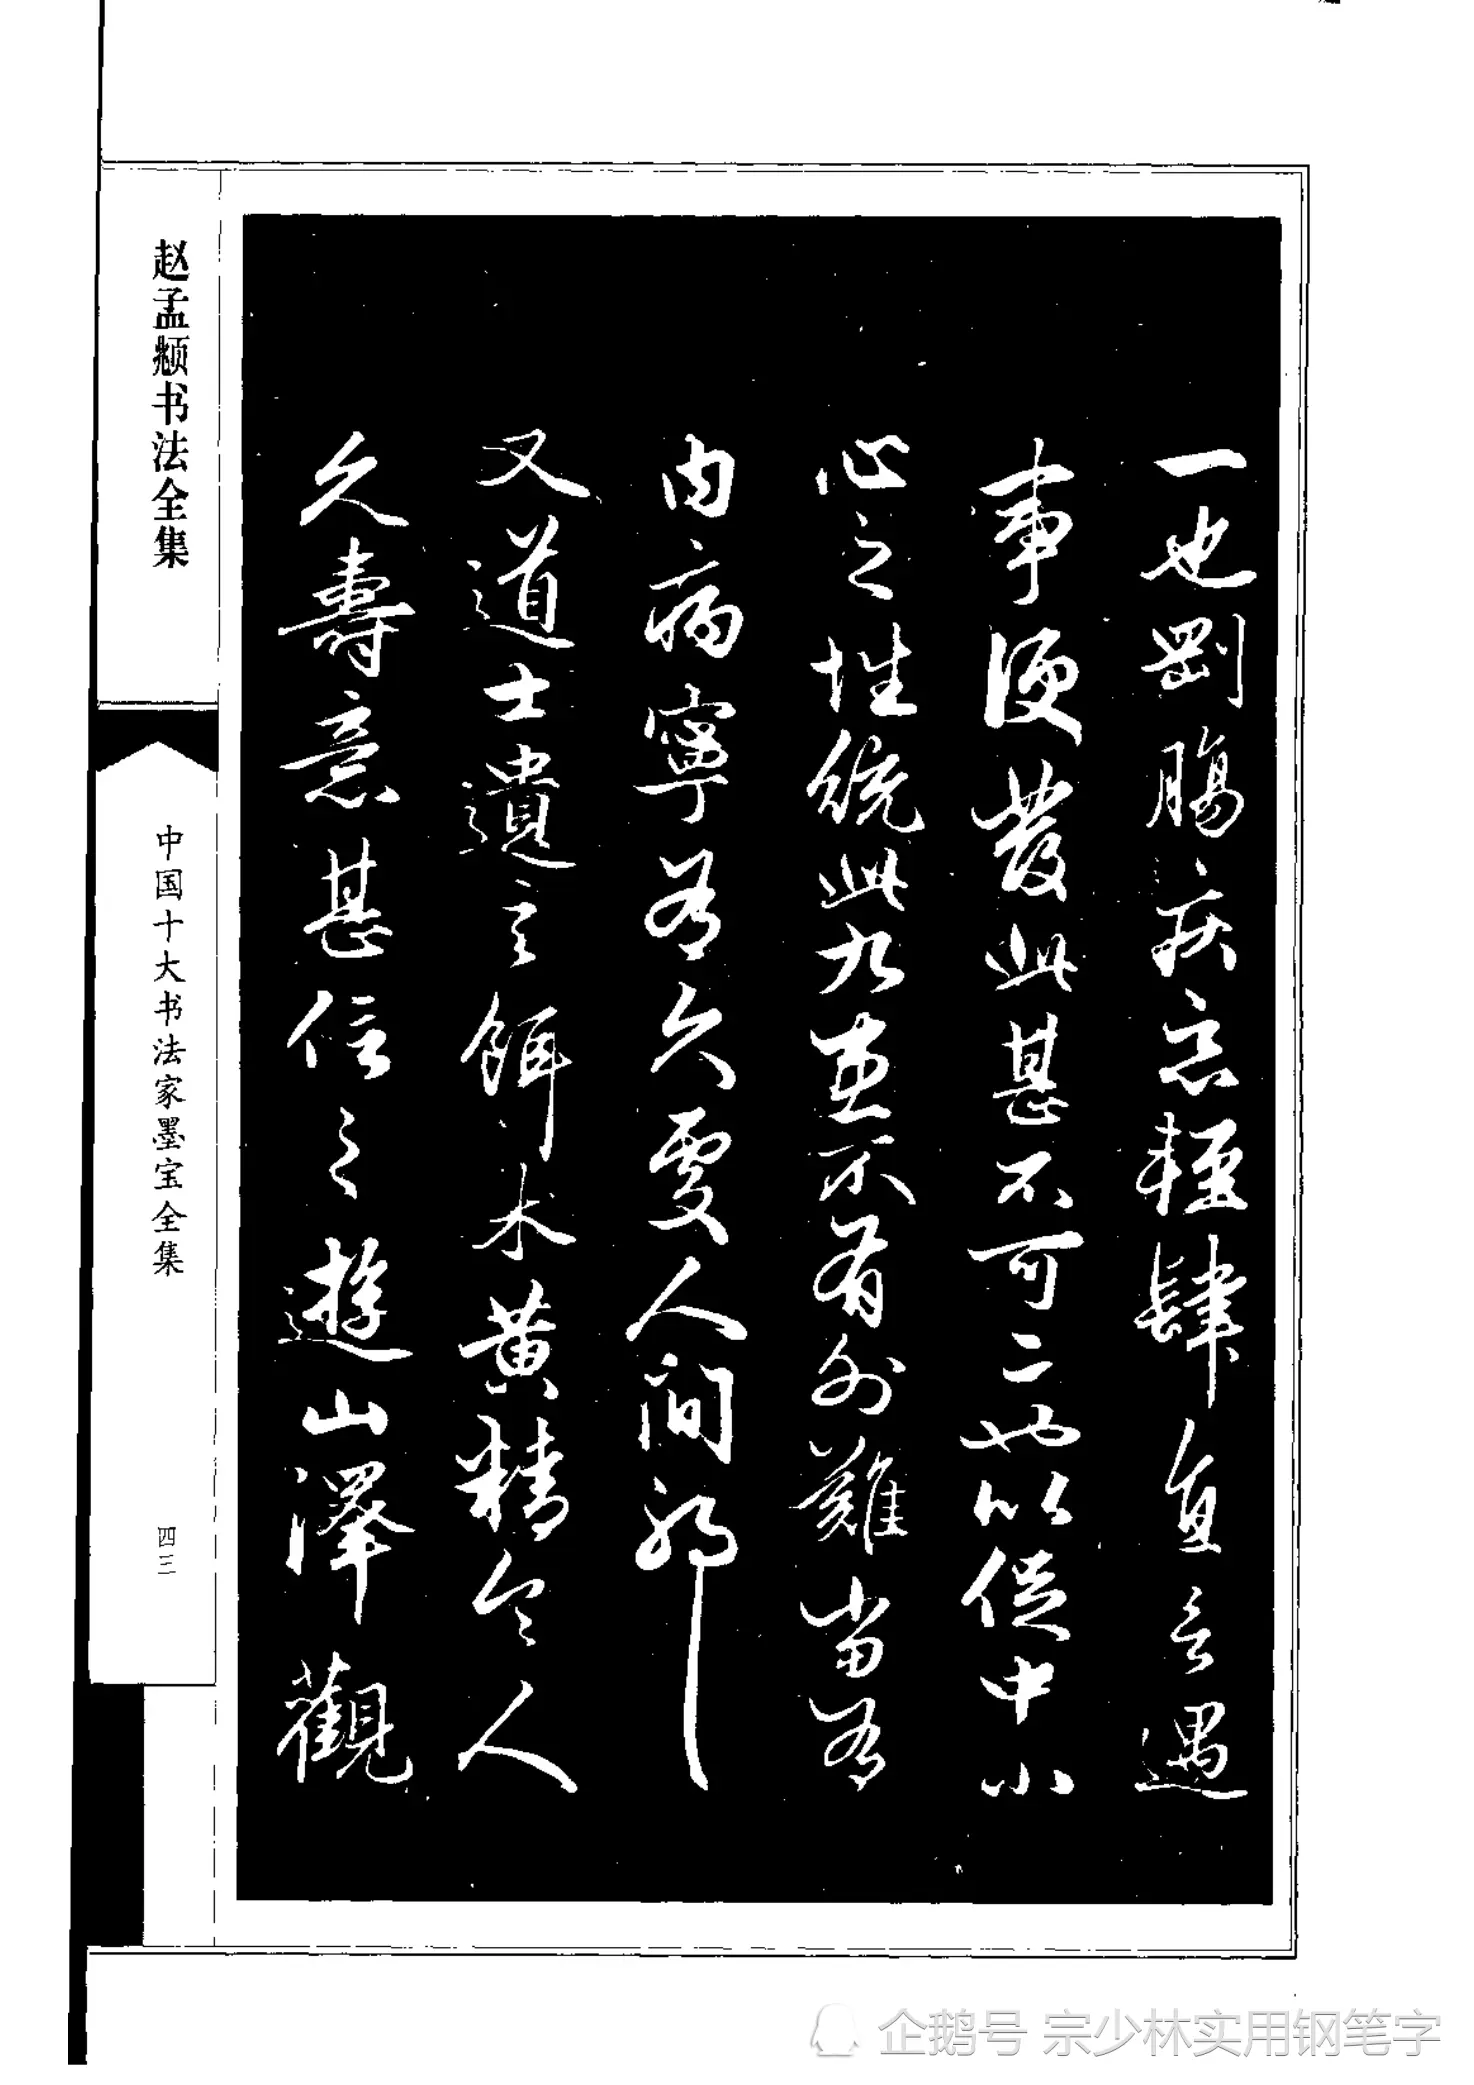 一也剛腸疾惡輕肆直言遇
事便發此甚不可二也以促中小
心之性統此九患不有外難當有
内病寧可久處人間邪
又道士遺言餌术黄精令人
久壽意甚信之遊山澤觀
赵孟頫书法全集
中国十大书法家墨宝全集
四三
企鹅号 宗少林实用钢笔字